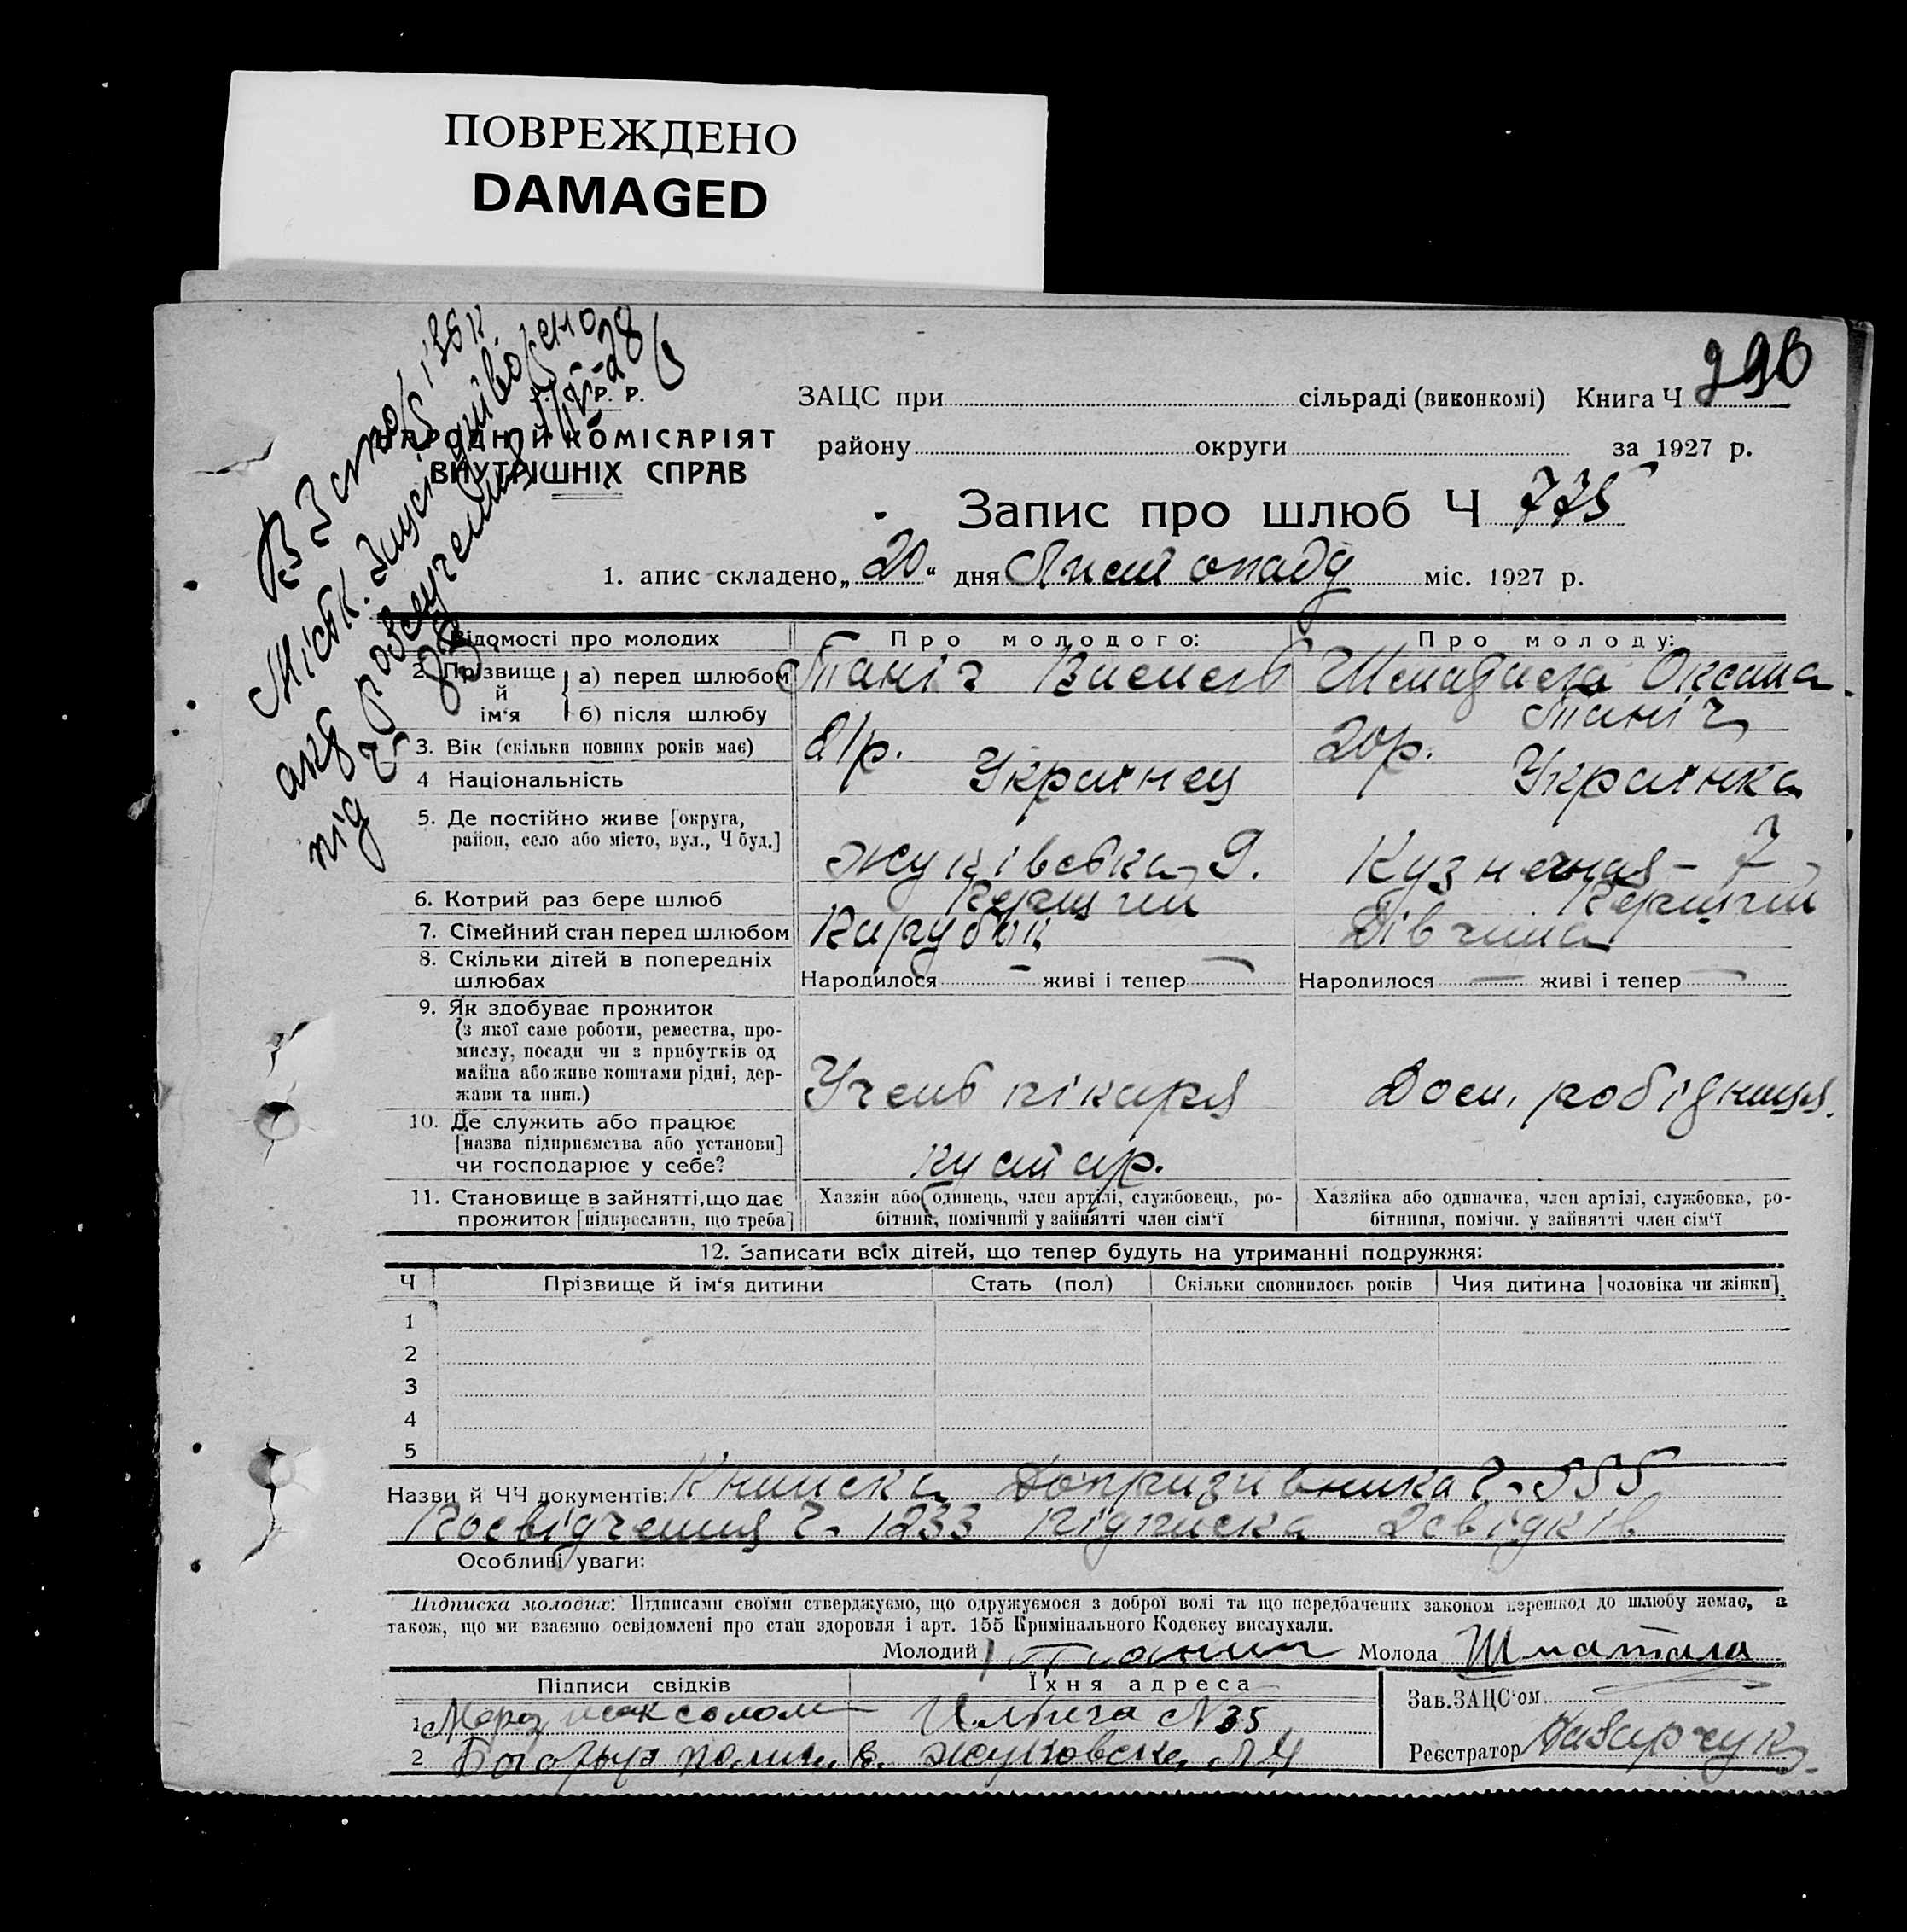 ПОВРЕЖДЕНО
DAMAGED
Р. Р.
НАРОДНІЙ КОМІСАРІЯТ
ВНУТРІШНІХ СПРАВ
ЗАЦС при сільраді (виконкомі) Книга Ч
району округи за 1927 р.
Запис про шлюб Ч 775
1. апис складено „20“ дня Листопаду міс. 1927 р.
Відомості про молодих
Про молодого:
Про молоду:
2. Прізвище й ім‘я
а) перед шлюбом
Таніч
Оксана
б) після шлюбу
Таніч
3. Вік (скільки повних років має)
21р.
20р.
4 Національність
Украінец
Украінка
5. Де постійно живе [округа,
район, село або місто, вул., Ч буд.]
Жуківська 9.
Кузнечная – 7
6. Котрий раз бере шлюб
Перший
Перший
7. Сімейний стан перед шлюбом
Парубок
Дівчина
8. Скільки дітей в попередніх
шлюбах
Народилося – живі і тепер –
Народилося – живі і тепер –
9. Як здобуває прожиток
(з якої саме роботи, ремества, про-
мислу, посади чи з прибутків од
майна або живе коштами рідні, дер-
жави та инш.)
Учень пікаря
робідниця.
10. Де служить або працює
[назва підприємства або установи]
чи господарює у себе?
кустар.
11. Становище в зайнятті, що дає
прожиток [підкреслити, що треба]
Хазяін або одинець, член артілі, службовець, ро-
бітник, помічний у зайнятті член сім‘ї
Хазяйка або одиначка, член артілі, службовка, ро-
бітниця, помічн. у зайнятті член сім‘ї
12. Записати всіх дітей, що тепер будуть на утриманні подружжя:
Ч
Прізвище й ім‘я дитини
Стать (пол)
Скільки сповнилось років
Чия дитина [чоловіка чи жінки]
1
2
3
4
5
Назви й ЧЧ документів: Книжка Допризивника Ч. 555
Посвідчення Ч. 1233 Підписка 2 свідків
Особливі уваги:
Підписка молодих: Підписами своїми стверджуємо, що одружуємося з доброї волі та що передбачених законом перешкод до шлюбу немає, а
також, що ми взаємно освідомлені про стан здоровля і арт. 155 Кримінального Кодексу вислухали.
Молодий Танич Молода Шматала
Підписи свідків
Їхня адреса
1 Мороз Ильича № 35
2 Жуковска
Зав. ЗАЦС‘ом
Реєстратор Назарчук